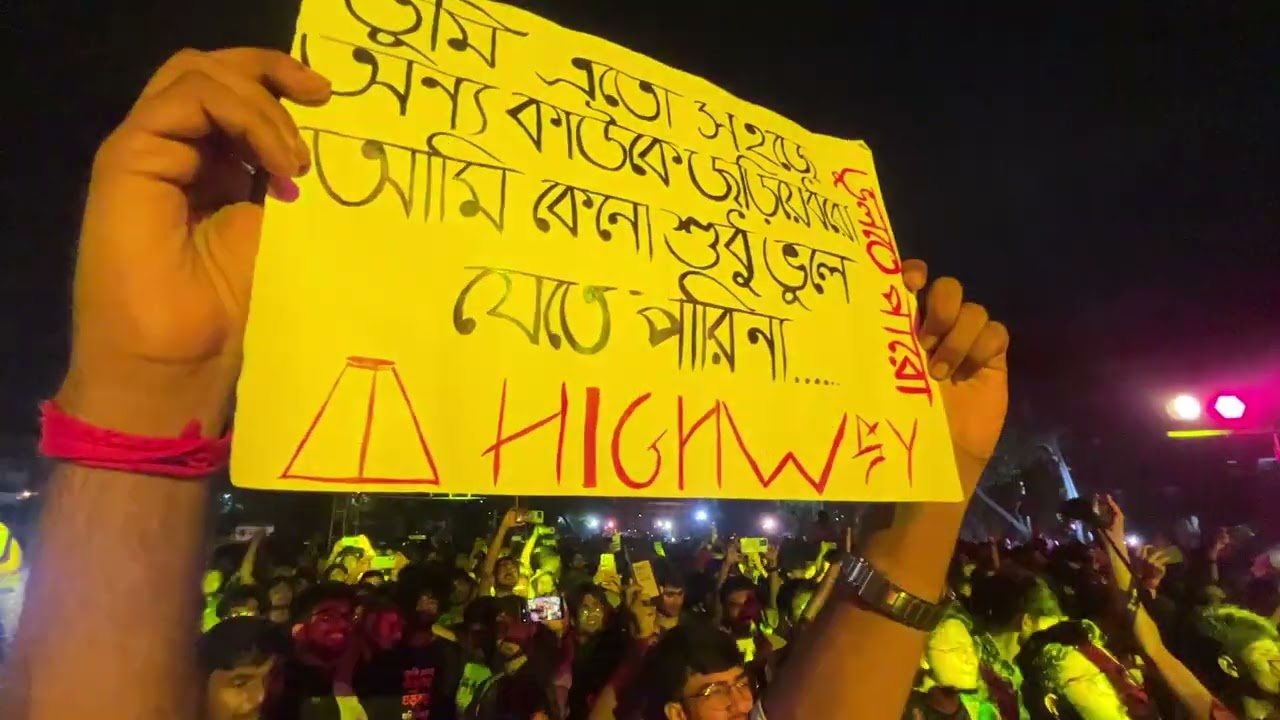 তুমি এতো সহজে
অন্য কাউকে জড়িয়ে ধরো
আমি কেনো শুধু ভুলে
যেতে পারিনা......
HIGHWAY